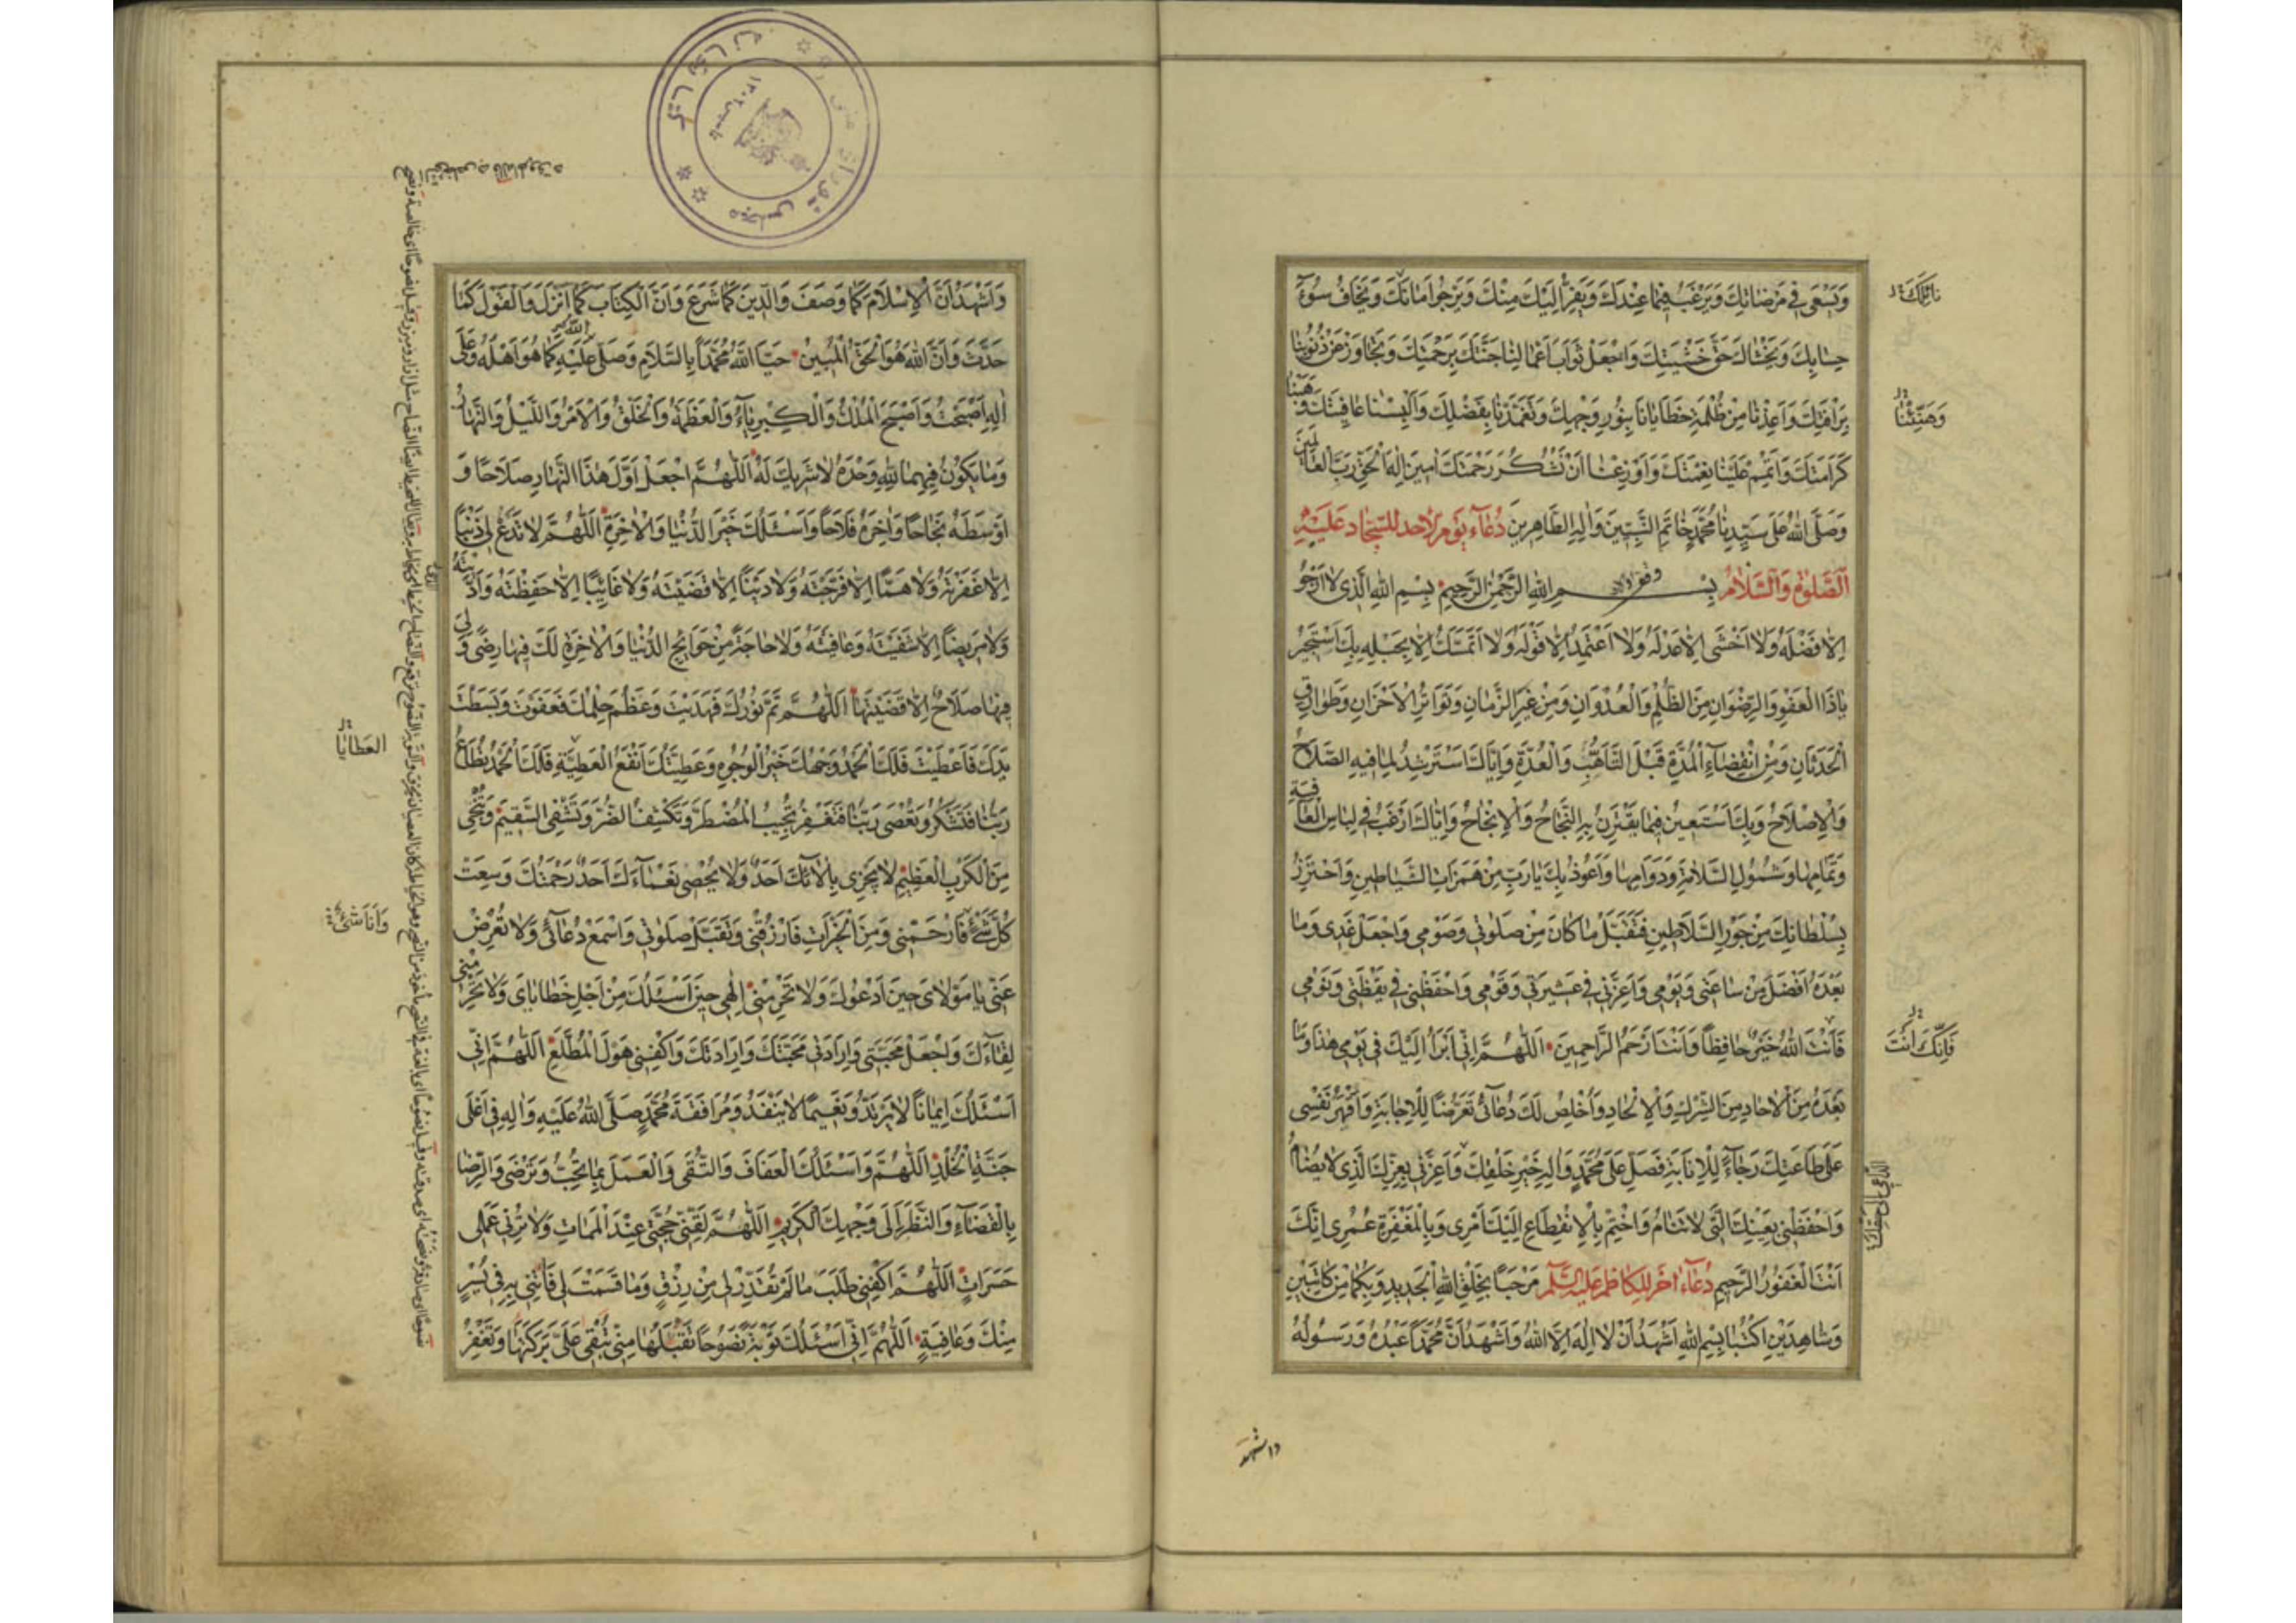 وَيَسْعَى فِي مَرْضَاتِكَ وَيَرْغَبُ فِيمَا عِنْدَكَ وَيَفِرُّ اِلَيْكَ مِنْكَ وَيَرْجُوا مَانَّكَ وَيَخَافُ سُوۤءَ
حِسَابِكَ وَيَخْشَاكَ حَقَّ خَشْيَتِكَ وَاجْعَلْ ثَوَابَ اَعْمَالِنَا جَنَّتَكَ بِرَحْمَتِكَ وَتَجَاوَزْ عَنْ ذُنُوبِنَا
بِرَأْفَتِكَ وَاَعِذْنَا مِنْ ظُلْمَةِ خَطَايَانَا بِنُورِ وَجْهِكَ وَتَغَمَّدْنَا بِفَضْلِكَ وَاَلْبِسْنَا عَافِيَتَكَ وَهَنِّئْنَا
كَرَامَتَكَ وَاَتْمِمْ عَلَيْنَا نِعْمَتَكَ وَاَوْزِعْنَا اَنْ نَشْكُرَ رَحْمَتَكَ اٰمِينَ اِلٰهَ الْحَقِّ رَبَّ الْعَالَمِينَ
وَصَلَّى اللّٰهُ عَلٰى سَيِّدِنَا مُحَمَّدٍ خَاتَمِ النَّبِيِّينَ وَاٰلِهِ الطَّاهِرِينَ دُعَاۤءُ يَوْمِ الْاَحَدِ لِلسَّجَّادِ عَلَيْهِ
الصَّلٰوةُ وَالسَّلَامُ بِسْمِ اللّٰهِ الرَّحْمٰنِ الرَّحِيمِ بِسْمِ اللّٰهِ الَّذِى لَا اَرْجُو
اِلَّا فَضْلَهُ وَلَا اَخْشَى اِلَّا عَدْلَهُ وَلَا اَعْتَمِدُ اِلَّا قَوْلَهُ وَلَا اَتَمَسَّكُ اِلَّا بِحَبْلِهِ بِكَ اَسْتَجِيرُ
يَاذَا الْعَفْوِ وَالرِّضْوَانِ مِنَ الظُّلْمِ وَالْعُدْوَانِ وَمِنْ غِيَرِ الزَّمَانِ وَتَوَاتُرِ الْاَحْزَانِ وَطَوَارِقِ
الْحَدَثَانِ وَمِنِ انْقِضَاۤءِ الْمُدَّةِ قَبْلَ التَّاَهُّبِ وَالْعُدَّةِ وَاِيَّاكَ اَسْتَرْشِدُ لِمَا فِيهِ الصَّلَاحُ
وَالْاِصْلَاحُ وَبِكَ اَسْتَعِينُ فِيمَا يَقْتَرِنُ بِهِ النَّجَاحُ وَالْاِنْجَاحُ وَاِيَّاكَ اَرْغَبُ فِى لِبَاسِ الْعَافِيَةِ
وَتَمَامِهَا وَشُمُولِ السَّلَامَةِ وَدَوَامِهَا وَاَعُوذُ بِكَ يَارَبِّ مِنْ هَمَزَاتِ الشَّيَاطِينِ وَاَحْتَرِزُ
بِسُلْطَانِكَ مِنْ جَوْرِ السَّلَاطِينِ فَتَقَبَّلْ مَا كَانَ مِنْ صَلٰوتِى وَصَوْمِى وَاجْعَلْ غَدِى وَمَا
بَعْدَهُ اَفْضَلَ مِنْ سَاعَتِى وَيَوْمِى وَاَعِزَّنِى فِى عَشِيرَتِى وَقَوْمِى وَاحْفَظْنِى فِى يَقْظَتِى وَنَوْمِى
فَاَنْتَ اللّٰهُ خَيْرٌ حَافِظًا وَاَنْتَ اَرْحَمُ الرَّاحِمِينَ اَللّٰهُمَّ اِنِّى اَبْرَاُ اِلَيْكَ فِى يَوْمِى هٰذَا وَمَا
بَعْدَهُ مِنَ الْاٰحَادِ مِنَ الشِّرْكِ وَالْاِلْحَادِ وَاُخْلِصُ لَكَ دُعَاۤئِى تَعَرُّضًا لِلْاِجَابَةِ وَاَقْهَرُ نَفْسِى
عَلٰى طَاعَتِكَ رَجَاۤءً لِلْاِثَابَةِ فَصَلِّ عَلٰى مُحَمَّدٍ وَاٰلِهِ خَيْرِ خَلْقِكَ وَاَعِزَّنِى بِعِزِّكَ الَّذِى لَا يُضَامُ
وَاحْفَظْنِى بِعَيْنِكَ الَّتِى لَا تَنَامُ وَاخْتِمْ بِالْاِنْقِطَاعِ اِلَيْكَ اَمْرِى وَبِالْمَغْفِرَةِ عُمْرِى اِنَّكَ
اَنْتَ الْغَفُورُ الرَّحِيمُ دُعَاۤءٌ اٰخَرُ لِلْكَاظِمِ عَلَيْهِ السَّلٰمُ مَرْحَبًا بِخَلْقِ اللّٰهِ الْجَدِيدِ وَبِكُمَا مِنْ كَاتِبَيْنِ
وَشَاهِدَيْنِ اُكْتُبَا بِسْمِ اللّٰهِ اَشْهَدُ اَنْ لَا اِلٰهَ اِلَّا اللّٰهُ وَاَشْهَدُ اَنَّ مُحَمَّدًا عَبْدُهُ وَرَسُولُهُ
وَصَنِّئْنَا
فَاِنَّكَ اَنْتَ
وَاشْهَد
وَاَشْهَدُ اَنَّ الْاِسْلَامَ كَمَا وَصَفَ وَالدِّينَ كَمَا شَرَعَ وَاَنَّ الْكِتَابَ كَمَا اَنْزَلَ وَالْقَوْلَ كَمَا
حَدَّثَ وَاَنَّ اللّٰهَ هُوَ الْحَقُّ الْمُبِينُ حَيَّا اللّٰهُ مُحَمَّدًا بِالسَّلَامِ وَصَلَّى اللّٰهُ عَلَيْهِ كَمَا هُوَ اَهْلُهُ وَعَلٰى
اٰلِهِ اَصْبَحْتُ وَاَصْبَحَ الْمُلْكُ وَالْكِبْرِيَاۤءُ وَالْعَظَمَةُ وَالْخَلْقُ وَالْاَمْرُ وَاللَّيْلُ وَالنَّهَارُ
وَمَا يَكُونُ فِيهِمَا لِلّٰهِ وَحْدَهُ لَا شَرِيكَ لَهُ اَللّٰهُمَّ اجْعَلْ اَوَّلَ هٰذَا النَّهَارِ صَلَاحًا وَ
اَوْسَطَهُ نَجَاحًا وَاٰخِرَهُ فَلَاحًا وَاَسْئَلُكَ خَيْرَ الدُّنْيَا وَالْاٰخِرَةِ اَللّٰهُمَّ لَا تَدَعْ لِى ذَنْبًا
اِلَّا غَفَرْتَهُ وَلَا هَمًّا اِلَّا فَرَّجْتَهُ وَلَا دَيْنًا اِلَّا قَضَيْتَهُ وَلَا غَائِبًا اِلَّا حَفِظْتَهُ وَاَدَّيْتَهُ
وَلَا مَرِيضًا اِلَّا شَفَيْتَهُ وَعَافَيْتَهُ وَلَا حَاجَةً مِنْ حَوَائِجِ الدُّنْيَا وَالْاٰخِرَةِ لَكَ فِيهَا رِضًى وَلِىَ
فِيهَا صَلَاحٌ اِلَّا قَضَيْتَهَا اَللّٰهُمَّ تَمَّ نُورُكَ فَهَدَيْتَ وَعَظُمَ حِلْمُكَ فَعَفَوْتَ وَبَسَطْتَ
يَدَكَ فَاَعْطَيْتَ فَلَكَ الْحَمْدُ وَجْهُكَ خَيْرُ الْوُجُوهِ وَعَطِيَّتُكَ اَنْفَعُ الْعَطِيَّةِ فَلَكَ الْحَمْدُ تُطَاعُ
رَبَّنَا فَتَشْكُرُ وَتُعْصَى رَبَّنَا فَتَغْفِرُ تُجِيبُ الْمُضْطَرَّ وَتَكْشِفُ الضُّرَّ وَتَشْفِى السَّقِيمَ وَتُنْجِى
مِنَ الْكَرْبِ الْعَظِيمِ لَا يَجْزِى بِاٰلَائِكَ اَحَدٌ وَلَا يُحْصِى نَعْمَاۤءَكَ اَحَدٌ رَحْمَتُكَ وَسِعَتْ
كُلَّ شَىْءٍ فَارْحَمْنِى وَمِنَ الْخَيْرَاتِ فَارْزُقْنِى وَتَقَبَّلْ صَلٰوتِى وَاسْمَعْ دُعَاۤئِى وَلَا تُعْرِضْ
عَنِّى يَا مَوْلَاىَ حِينَ اَدْعُوكَ وَلَا تَحْرِمْنِى اِلٰهِى حِينَ اَسْئَلُكَ مِنْ اَجْلِ خَطَايَاىَ وَلَا تَحْرِمْنِى
لِقَاۤءَكَ وَاجْعَلْ مَحَبَّتِى وَاِرَادَتِى مَحَبَّتَكَ وَاِرَادَتَكَ وَاكْفِنِى هَوْلَ الْمُطَّلَعِ اَللّٰهُمَّ اِنِّى
اَسْئَلُكَ اِيمَانًا لَا يَرْتَدُّ وَنَعِيمًا لَا يَنْفَدُ وَمُرَافَقَةَ مُحَمَّدٍ صَلَّى اللّٰهُ عَلَيْهِ وَاٰلِهِ فِى اَعْلٰى
جَنَّةِ الْخُلْدِ اَللّٰهُمَّ وَاَسْئَلُكَ الْعَفَافَ وَالتُّقَى وَالْعَمَلَ بِمَا تُحِبُّ وَتَرْضَى وَالرِّضَا
بِالْقَضَاۤءِ وَالنَّظَرَ اِلٰى وَجْهِكَ الْكَرِيمِ اَللّٰهُمَّ لَقِّنِّى حُجَّتِى عِنْدَ الْمَمَاتِ وَلَا تُرِنِى عَمَلِى
حَسَرَاتٍ اَللّٰهُمَّ اكْفِنِى طَلَبَ مَا لَمْ تُقَدِّرْ لِى مِنْ رِزْقٍ وَمَا قَسَمْتَ لِى فَأْتِنِى بِهِ فِى يُسْرٍ
مِنْكَ وَعَافِيَةٍ اَللّٰهُمَّ اِنِّى اَسْئَلُكَ تَوْبَةً نَصُوحًا تَقْبَلُهَا مِنِّى تُبْقِى عَلَىَّ بَرَكَتَهَا وَتَغْفِرُ
العَطَايَا
كتابخانه مجلس شورای ملی